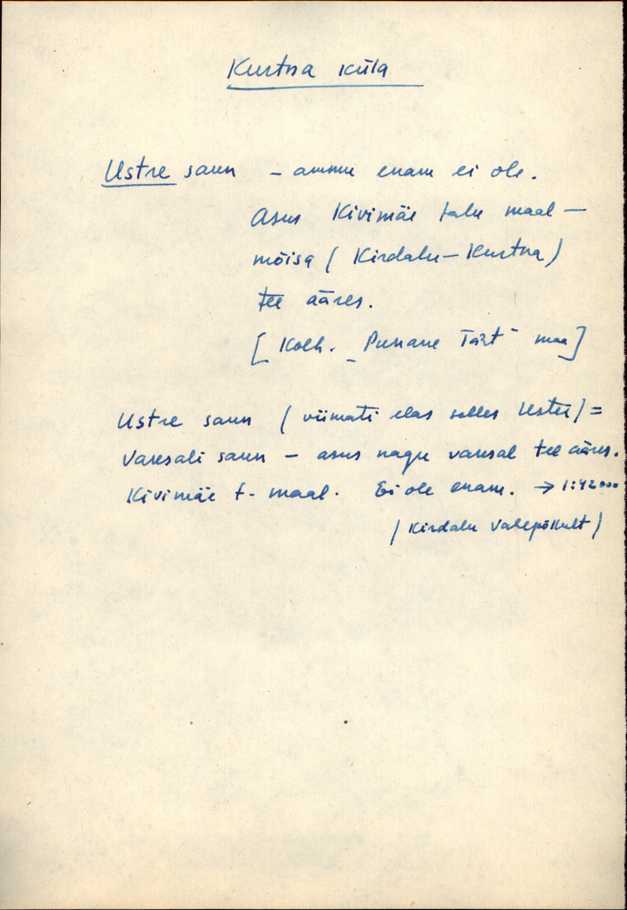 Kurtna küla
Ustre saun – ammu enam ei ole.
Asus Kivimäe talu maal –
mõisa (Kirdalu–Kurtna)
tee ääres.
[Kolh. „Punane Täht" maa]
Ustre saun (viimati elas selles Uster) =
Varesali saun – asus nagu varesal tee ääres.
Kivimäe t. maal. Ei ole enam. → 1:42000
(Kirdalu vahepõllult)